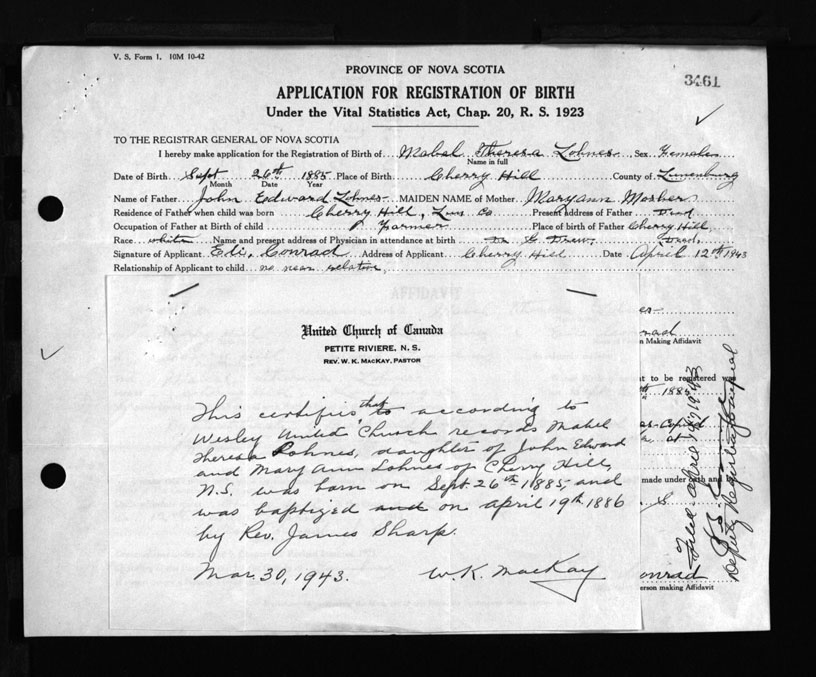 V. S. Form 1. 10M 10-42
PROVINCE OF NOVA SCOTIA
3461
APPLICATION FOR REGISTRATION OF BIRTH
Under the Vital Statistics Act, Chap. 20, R. S. 1923
TO THE REGISTRAR GENERAL OF NOVA SCOTIA
I hereby make application for the Registration of Birth of Mabel Theresa Lohnes Sex Females
Name in full
Date of Birth Sept 26th 1885 Place of Birth Cherry Hill County of Lunenburg
Month Date Year
Name of Father John Edward Lohnes MAIDEN NAME of Mother Maryann Mosher
Residence of Father when child was born Cherry Hill, Lun Co Present address of Father Dead
Occupation of Father at Birth of child Farmer Place of birth of Father Cherry Hill
Race white Name and present address of Physician in attendance at birth Dr C Drew Dead
Signature of Applicant Eli. Conrad Address of Applicant Cherry Hill Date April 12th 1943
Relationship of Applicant to child no near relative
AFFIDAVIT
United Church of Canada
PETITE RIVIERE, N. S.
REV. W. K. MACKAY, PASTOR
This certifies that to according to
Wesley United Church records Mabel
Theresa Lohnes, daughter of John Edward
and Mary Ann Lohnes of Cherry Hill,
N.S. was born on Sept 26th 1885 and
was baptized and on april 19th 1886
by Rev. James Sharp.
Mar 30, 1943. W. K. MacKay
nrad
n Making Affidavit
t to be registered was
th 1885
made under oath and
S
onrad
erson making Affidavit
Filed april 19 1943
Deputy Registrar General